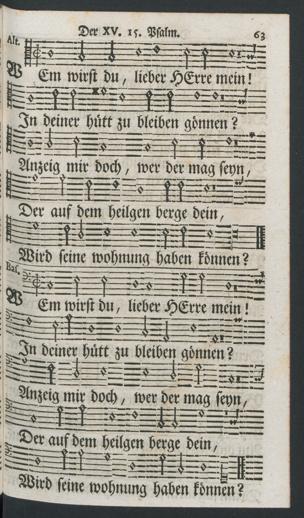 Der XV. 15. Psalm. 63
Alt.
WEm wirst du, lieber HErre mein!
In deiner hütt zu bleiben gönnen?
Anzeig mir doch, wer der mag seyn,
Der auf dem heilgen berge dein,
Wird seine wohnung haben können?
Bas.
WEm wirst du, lieber HErre mein!
In deiner hütt zu bleiben gönnen?
Anzeig mir doch, wer der mag seyn,
Der auf dem heilgen berge dein,
Wird seine wohnung haben können?